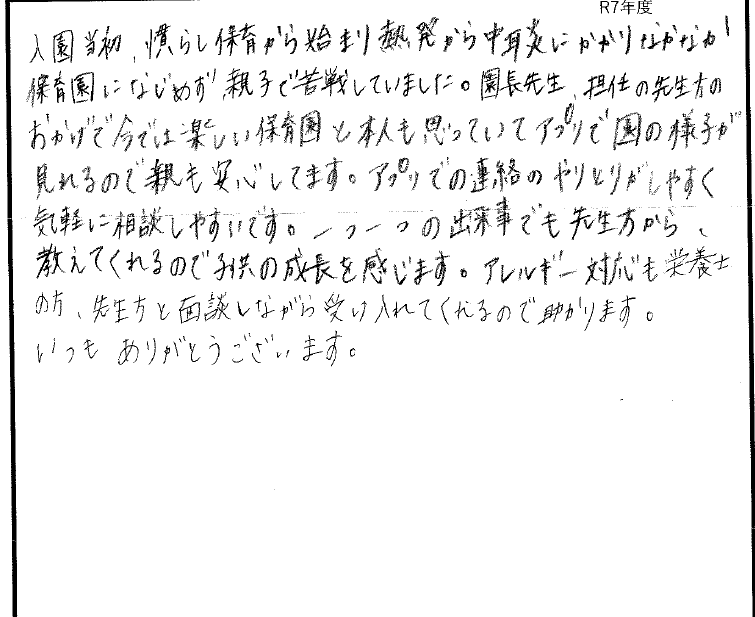 R7年度
入園当初、慣らし保育から始まり熱発から中耳炎にかかりなかなか
保育園になじめず、親子で苦戦していました。園長先生、担任の先生方の
おかげで今では楽しい保育園と本人も思っていてアプリで園の様子が
見れるので親も安心してます。アプリでの連絡のやりとりがしやすく
気軽に相談しやすいです。一つ一つの出来事でも先生方から、
教えてくれるので子供の成長を感じます。アレルギー対応も栄養士
の方、先生方と面談しながら受け入れてくれるので助かります。
いつもありがとうございます。